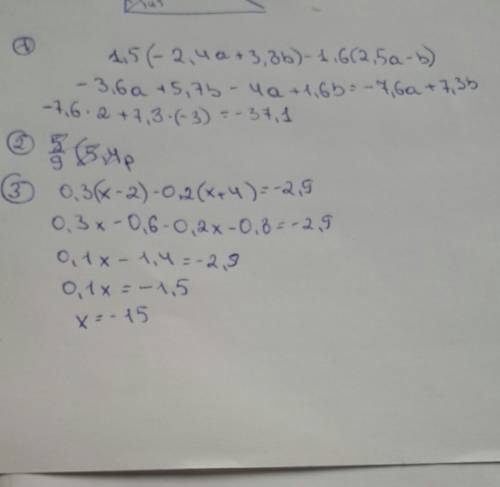 ① 1,5(-2,4a+3,8b)-1,6(2,5a-b)
-3,6a+5,7b-4a+1,6b=-7,6a+7,3b
-7,6·2+7,3·(-3)=-37,1
② 5/9(5,4p
③ 0,3(x-2)-0,2(x+4)=-2,9
0,3x-0,6-0,2x-0,8=-2,9
0,1x-1,4=-2,9
0,1x=-1,5
x=-15